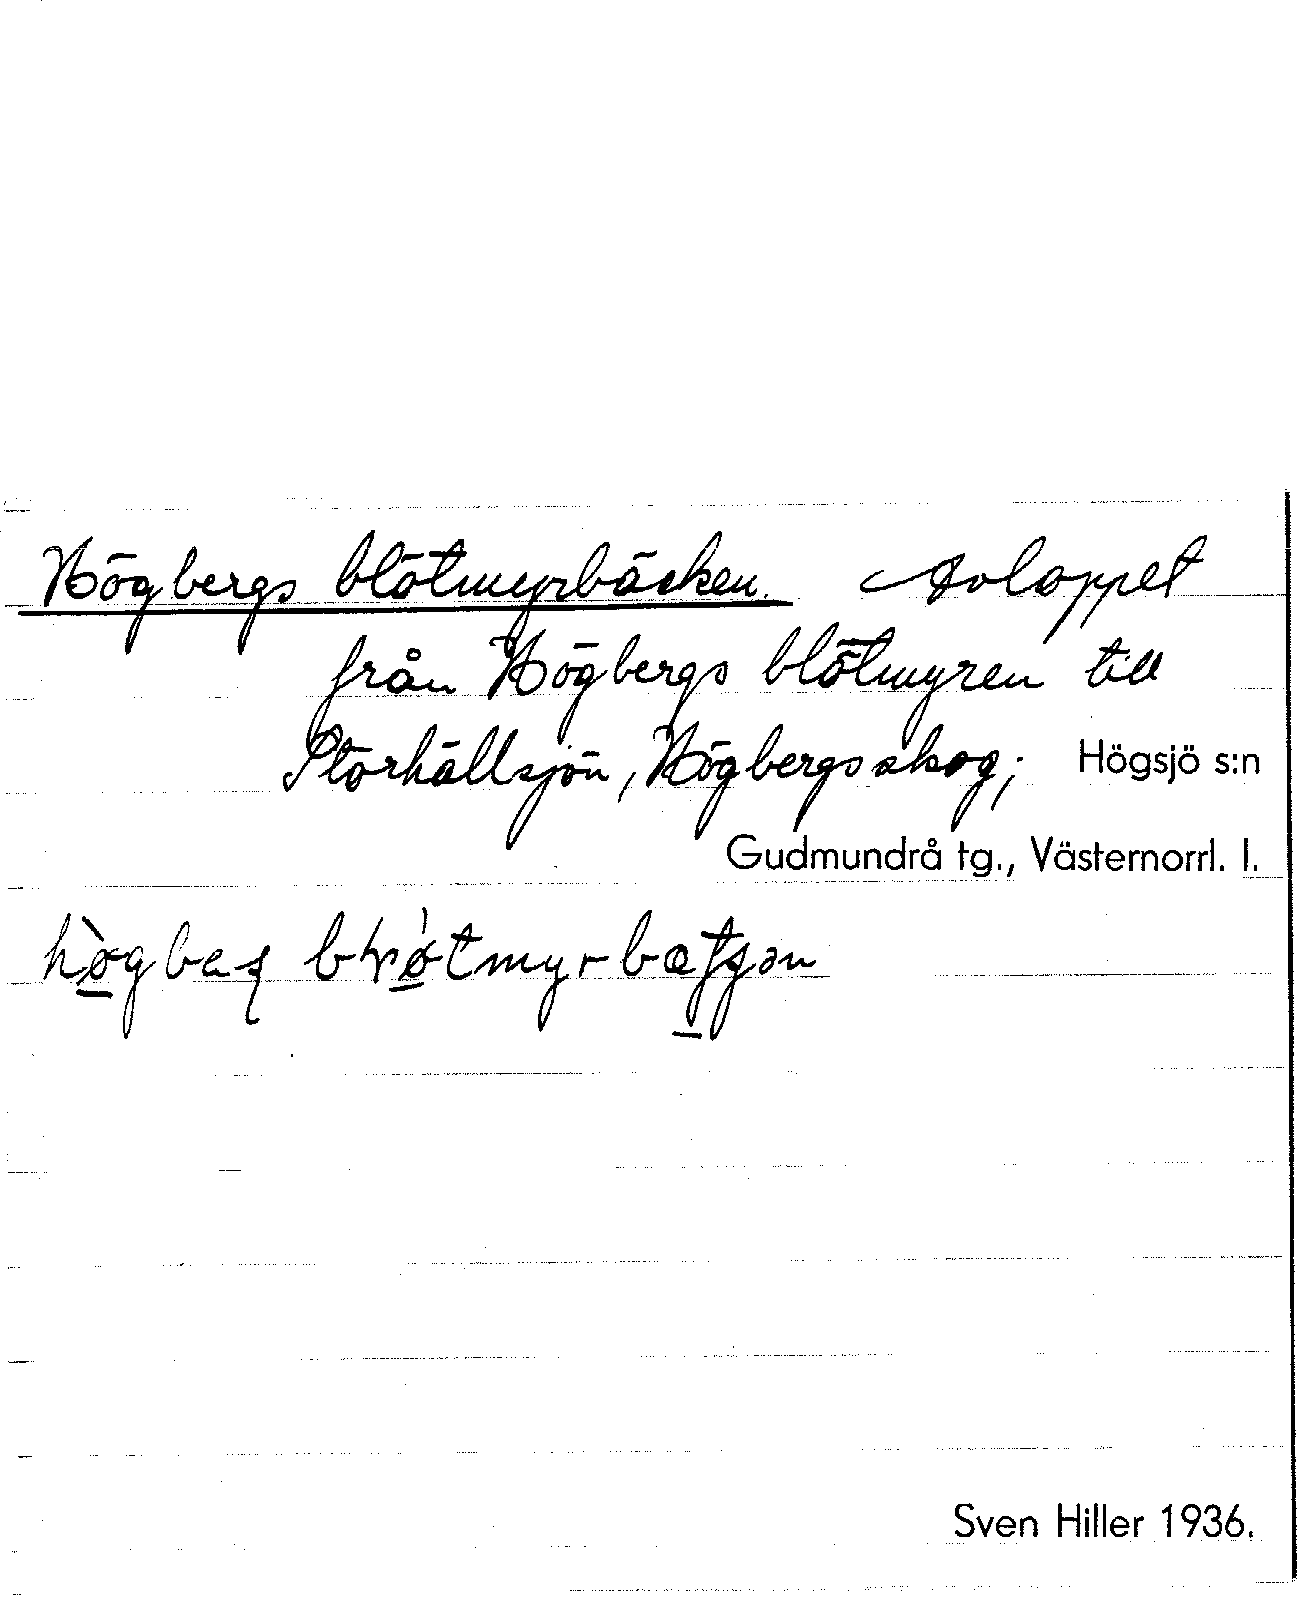 Högbergs blötmyrbäcken. Avloppet
från Högbergs blötmyren till
Storhällsjön, Högbergsskog; Högsjö s:n
Gudmundrå tg., Västernorrl. l.
Sven Hiller 1936.